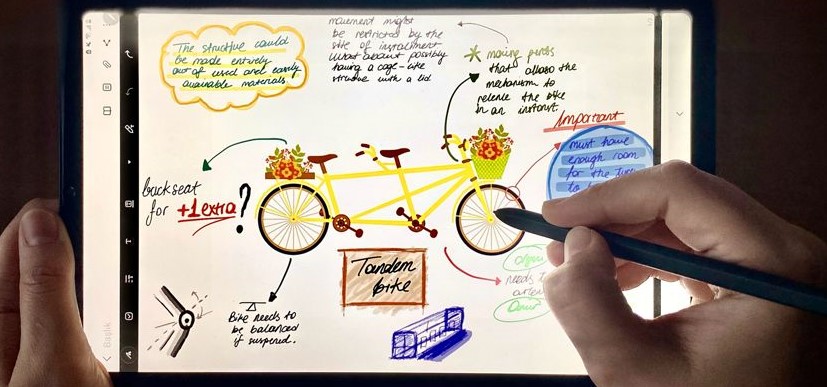 The structure could
be made entirely
out of used and easily
available materials.
movement might
be restricted by the
site of installment
What about possibly
having a cage-like
structure with a lid
* moving parts
that allow the
mechanism to
release the bike
in an instant
Important
must have
enough room
for the
backseat
for +1 extra?
Tandem
bike
needs
Bike needs to
be balanced
if suspended.